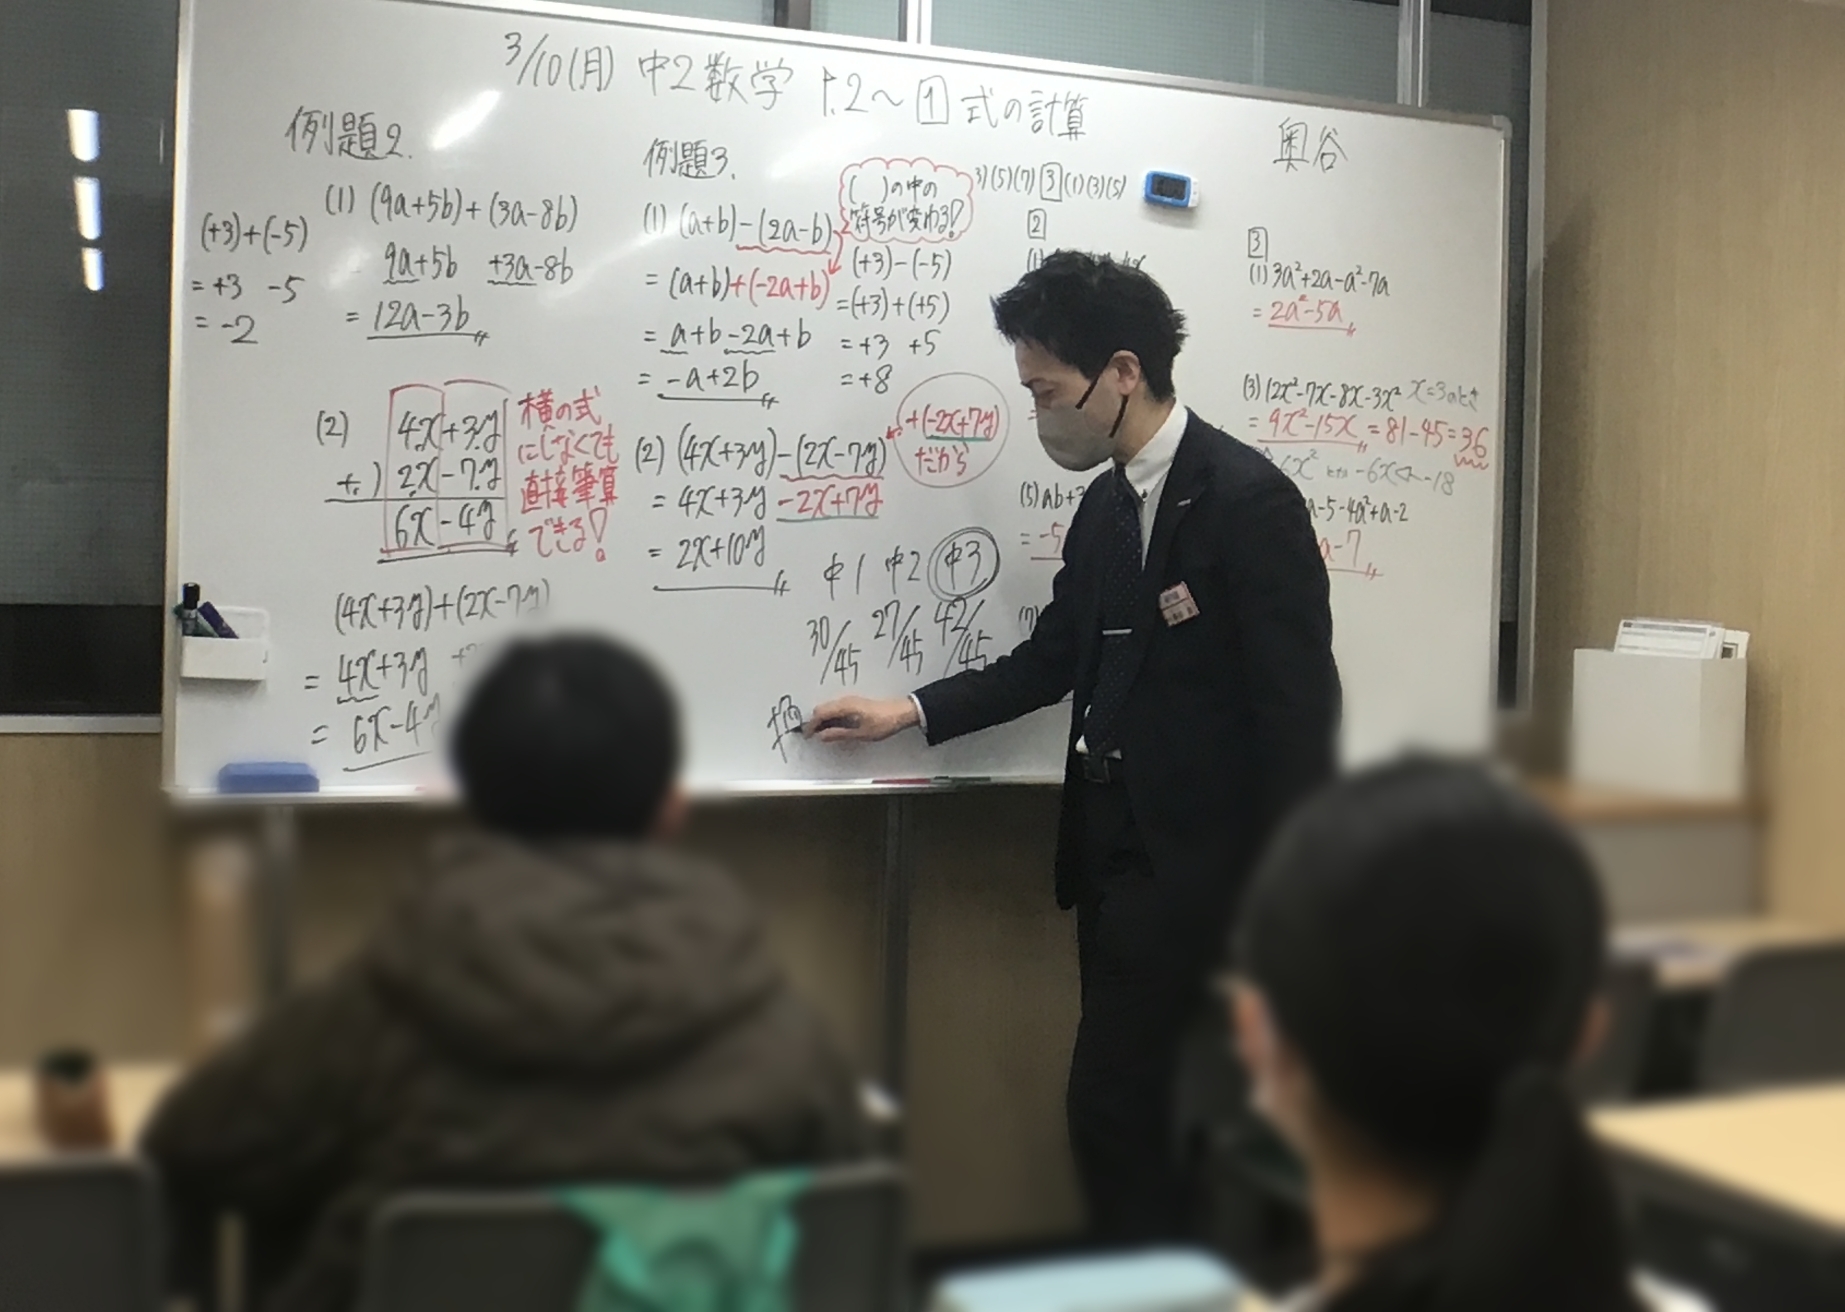 3/10(月) 中2数学 P.2～ 1 式の計算
奥谷
例題2.
(+3)+(-5)
= +3 -5
= -2
(1) (9a+5b)+(3a-8b)
9a+5b +3a-8b
= 12a-3b
(2) 4x+3y
+) 2x-7y
6x-4y
横の式
にしなくても
直接筆算
できる!
(4x+3y)+(2x-7y)
= 4x+3y
= 6x-4y
例題3.
(1) (a+b)-(2a-b)
= (a+b)+(-2a+b)
= a+b-2a+b
= -a+2b
( )の中の
符号が変わる!
(+3)-(-5)
=(+3)+(+5)
= +3 +5
= +8
(2) (4x+3y)-(2x-7y)
= 4x+3y -2x+7y
= 2x+10y
+(-2x+7y)
だから
中1 中2 中3
30/45 27/45 42/45
3)(5)(7) 3 (1)(3)(5)
2
(5) ab+3
= -5
3
(1) 3a²+2a-a²-7a
= 2a²-5a
(3) 12x²-7x-8x-3x² x=3のとき
= 9x²-15x = 81-45=36
6x² -6x -18
a-5-4a²+a-2
a-7